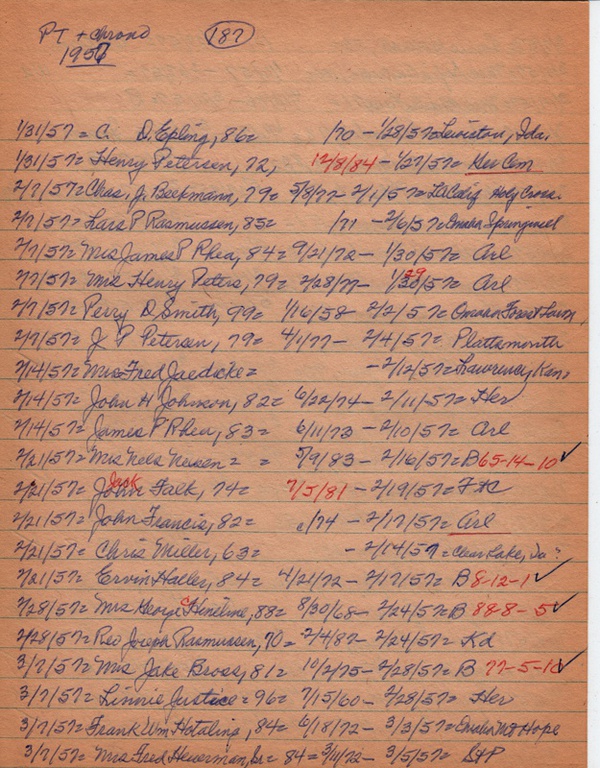 PT + Chrono (187)
1957
1/31/57= C. D. Epling, 86= /70 - 1/28/57= Lewiston, Ida.
1/31/57= Henry Petersen, 72, 12/8/84 - 1/27/57= Her Cem
2/7/57= Chas. J. Beekmann, 79= 5/8/77 - 2/1/57= Holy Cross.
2/7/57= Lars P Rasmussen, 85= /71 - 2/6/57= Omaha Springwell
2/7/57= Mrs James P Rhea, 84= 9/21/72 - 1/30/57= Arl
2/7/57= Mrs Henry Peters, 79= 2/28/77 - 1/30/57= Arl 29
2/7/57= Perry D. Smith, 99= 1/16/58 - 2/2/57= Omaha Forest Lawn,
2/7/57= J. P Petersen, 79= 4/1/77 - 2/4/57= Plattsmouth
2/14/57= Mrs Fred Jaedicke= - 2/12/57= Lawrence, Kan.
2/14/57= John H Johnson, 82= 6/22/74 - 2/11/57= Her
2/14/57= James P Rhea, 83= 6/11/73 - 2/10/57= Arl
2/21/57= Mrs Nels = 5/9/83 - 2/16/57= B 65-14-10 ✓
2/21/57= John Jack Falk, 74= 7/5/81 - 2/19/57=
2/21/57= John Francis, 82= c/74 - 2/17/57= Arl
2/21/57= Chris Miller, 63= - 2/14/57= Clear Lake, Ia ?
2/21/57= Ervin Haller, 84= 4/21/72 - 2/17/57= B 8-12-1 ✓
2/28/57= Mrs George C Hineline, 88= 8/30/68 - 2/24/57= B 88-8-5 ✓
2/28/57= Rev Joseph Rasmussen, 70= 2/4/87 - 2/24/57= Kd
3/7/57= Mrs Jake Bross, 81= 10/2/75 - 2/28/57= B 77-5-10 ✓
3/7/57= Linnie Justice= 96= 7/15/60 - 2/28/57= Her
3/7/57= Frank Wm Hotaling, 84= 6/18/72 - 3/3/57= Omaha Mt Hope
3/7/57= Mrs Fred Heuerman, Sr= 84= 3/11/72 - 3/5/57= St P